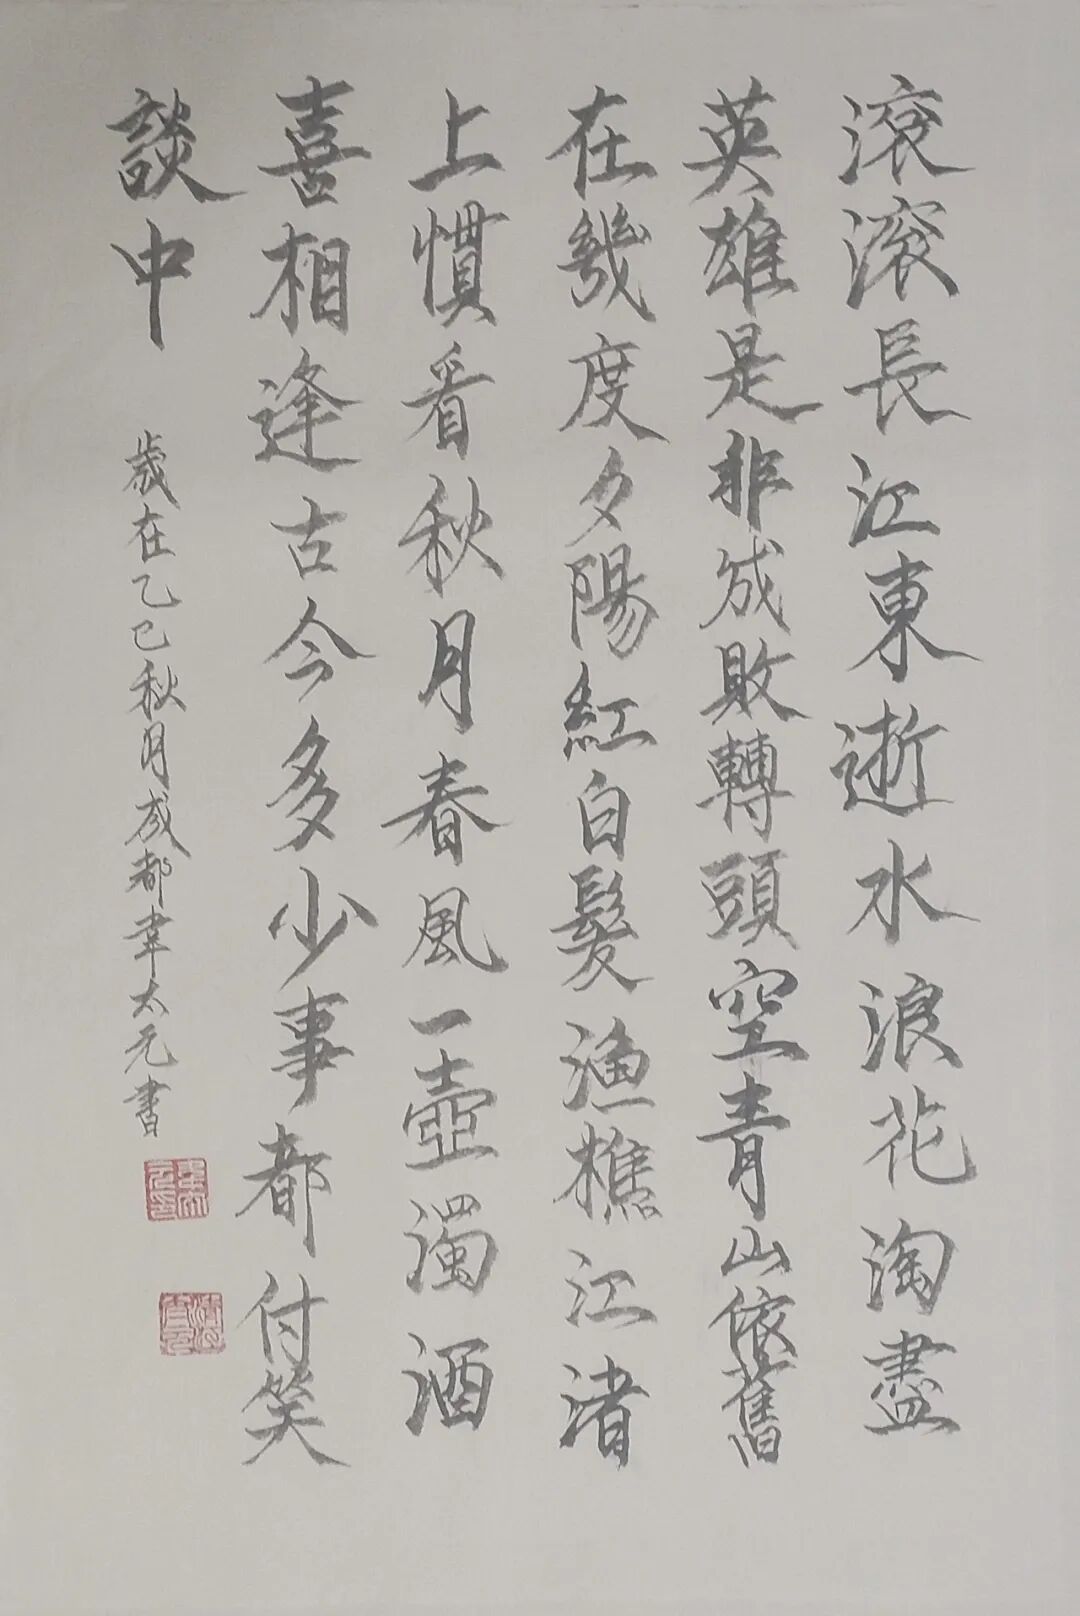 滚滚長江東逝水浪花淘盡
英雄是非成敗轉頭空青山依舊
在幾度夕陽紅白髮漁樵江渚
上慣看秋月春風一壺濁酒
喜相逢古今多少事都付笑
談中
歲在乙巳秋月成都韋太元書